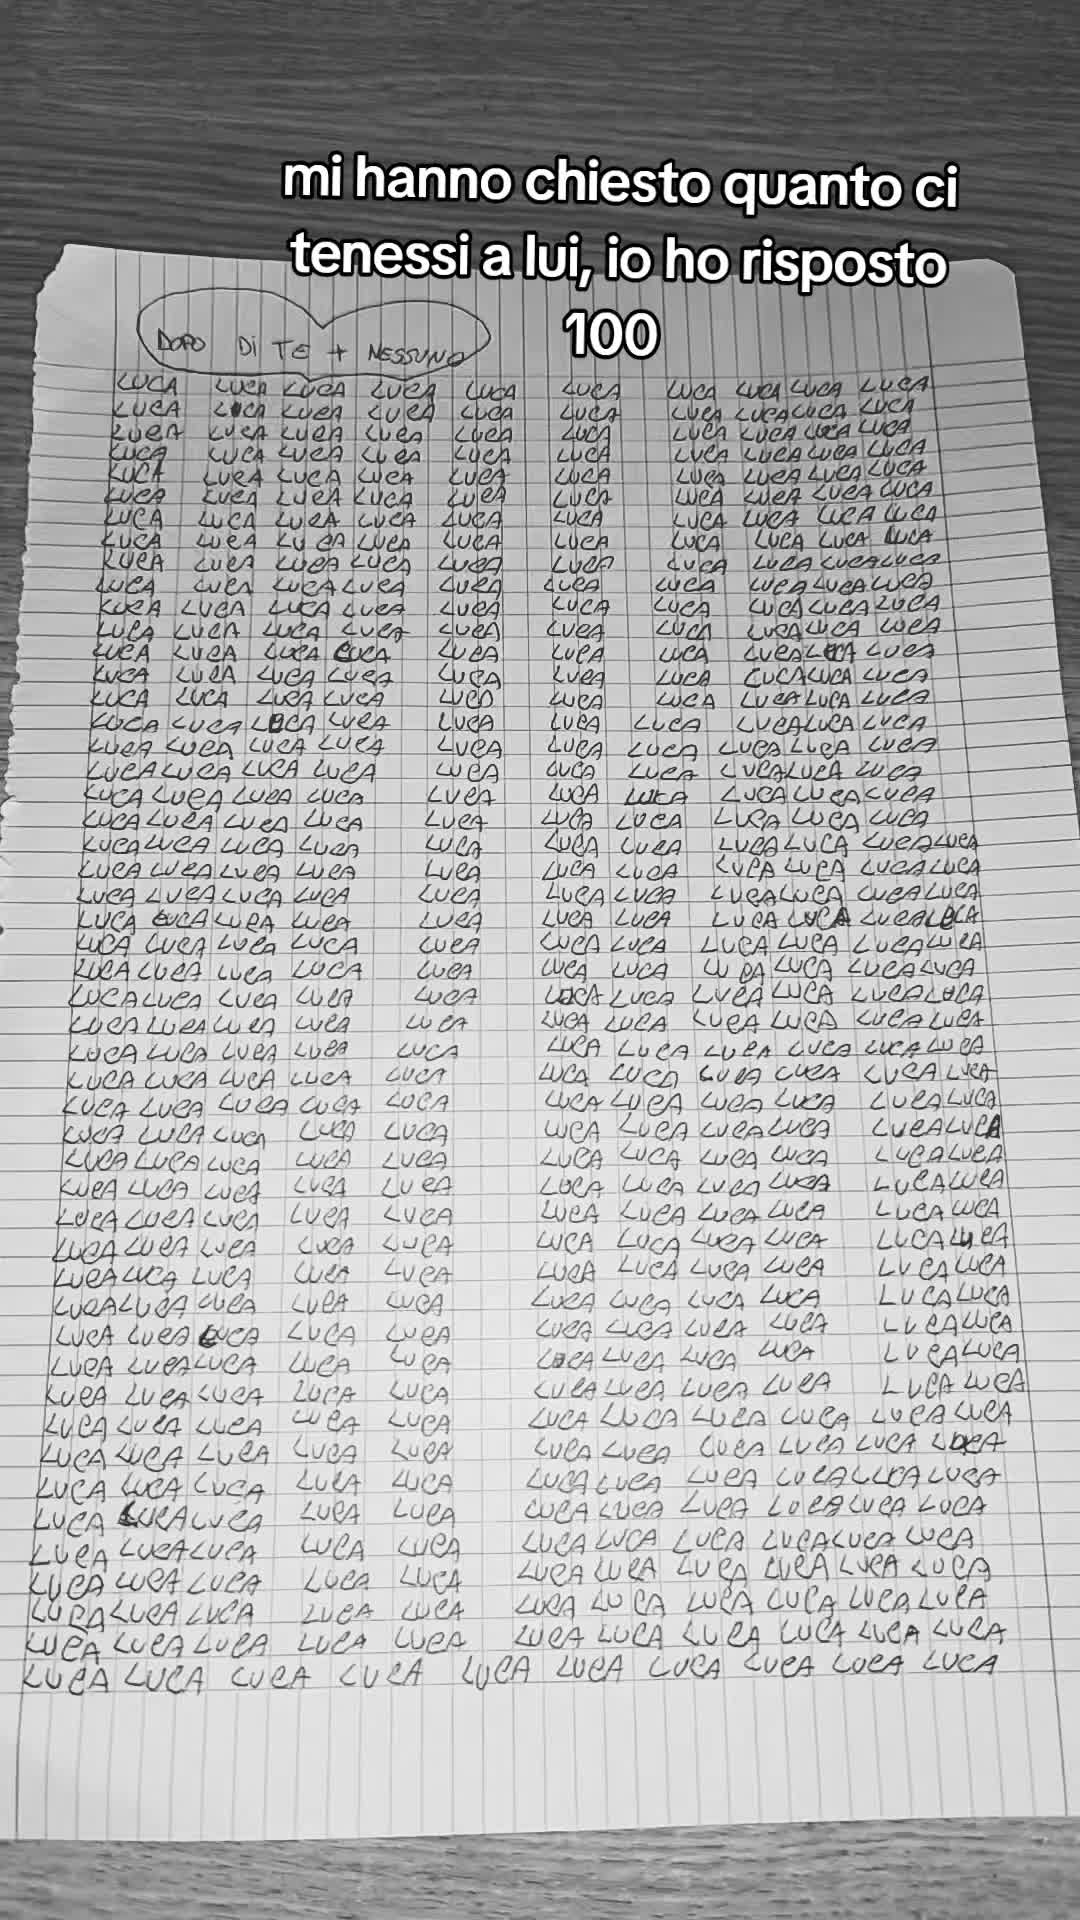 mi hanno chiesto quanto ci
tenessi a lui, io ho risposto
100
DOPO DI TE + NESSUNO
LUCA LUCA LUCA LUCA LUCA LUCA LUCA LUCA LUCA LUCA
LUCA LUCA LUCA LUCA LUCA LUCA LUCA LUCA LUCA LUCA
LUCA LUCA LUCA LUCA LUCA LUCA LUCA LUCA LUCA LUCA
LUCA LUCA LUCA LUCA LUCA LUCA LUCA LUCA LUCA LUCA
LUCA LUCA LUCA LUCA LUCA LUCA LUCA LUCA LUCA LUCA
LUCA LUCA LUCA LUCA LUCA LUCA LUCA LUCA LUCA LUCA
LUCA LUCA LUCA LUCA LUCA LUCA LUCA LUCA LUCA LUCA
LUCA LUCA LUCA LUCA LUCA LUCA LUCA LUCA LUCA LUCA
LUCA LUCA LUCA LUCA LUCA LUCA LUCA LUCA LUCA LUCA
LUCA LUCA LUCA LUCA LUCA LUCA LUCA LUCA LUCA LUCA
LUCA LUCA LUCA LUCA LUCA LUCA LUCA LUCA LUCA LUCA
LUCA LUCA LUCA LUCA LUCA LUCA LUCA LUCA LUCA LUCA
LUCA LUCA LUCA LUCA LUCA LUCA LUCA LUCA LUCA LUCA
LUCA LUCA LUCA LUCA LUCA LUCA LUCA LUCA LUCA LUCA
LUCA LUCA LUCA LUCA LUCA LUCA LUCA LUCA LUCA LUCA
LUCA LUCA LUCA LUCA LUCA LUCA LUCA LUCA LUCA LUCA
LUCA LUCA LUCA LUCA LUCA LUCA LUCA LUCA LUCA LUCA
LUCA LUCA LUCA LUCA LUCA LUCA LUCA LUCA LUCA LUCA
LUCA LUCA LUCA LUCA LUCA LUCA LUCA LUCA LUCA LUCA
LUCA LUCA LUCA LUCA LUCA LUCA LUCA LUCA LUCA LUCA
LUCA LUCA LUCA LUCA LUCA LUCA LUCA LUCA LUCA LUCA LUCA
LUCA LUCA LUCA LUCA LUCA LUCA LUCA LUCA LUCA LUCA LUCA
LUCA LUCA LUCA LUCA LUCA LUCA LUCA LUCA LUCA LUCA LUCA
LUCA LUCA LUCA LUCA LUCA LUCA LUCA LUCA LUCA LUCA LUCA
LUCA LUCA LUCA LUCA LUCA LUCA LUCA LUCA LUCA LUCA LUCA
LUCA LUCA LUCA LUCA LUCA LUCA LUCA LUCA LUCA LUCA LUCA
LUCA LUCA LUCA LUCA LUCA LUCA LUCA LUCA LUCA LUCA LUCA
LUCA LUCA LUCA LUCA LUCA LUCA LUCA LUCA LUCA LUCA LUCA
LUCA LUCA LUCA LUCA LUCA LUCA LUCA LUCA LUCA LUCA LUCA
LUCA LUCA LUCA LUCA LUCA LUCA LUCA LUCA LUCA LUCA LUCA
LUCA LUCA LUCA LUCA LUCA LUCA LUCA LUCA LUCA LUCA LUCA
LUCA LUCA LUCA LUCA LUCA LUCA LUCA LUCA LUCA LUCA LUCA
LUCA LUCA LUCA LUCA LUCA LUCA LUCA LUCA LUCA LUCA LUCA
LUCA LUCA LUCA LUCA LUCA LUCA LUCA LUCA LUCA LUCA LUCA
LUCA LUCA LUCA LUCA LUCA LUCA LUCA LUCA LUCA LUCA LUCA
LUCA LUCA LUCA LUCA LUCA LUCA LUCA LUCA LUCA LUCA LUCA
LUCA LUCA LUCA LUCA LUCA LUCA LUCA LUCA LUCA LUCA LUCA
LUCA LUCA LUCA LUCA LUCA LUCA LUCA LUCA LUCA LUCA LUCA
LUCA LUCA LUCA LUCA LUCA LUCA LUCA LUCA LUCA LUCA LUCA
LUCA LUCA LUCA LUCA LUCA LUCA LUCA LUCA LUCA LUCA LUCA
LUCA LUCA LUCA LUCA LUCA LUCA LUCA LUCA LUCA LUCA LUCA
LUCA LUCA LUCA LUCA LUCA LUCA LUCA LUCA LUCA LUCA LUCA
LUCA LUCA LUCA LUCA LUCA LUCA LUCA LUCA LUCA LUCA LUCA
LUCA LUCA LUCA LUCA LUCA LUCA LUCA LUCA LUCA LUCA LUCA
LUCA LUCA LUCA LUCA LUCA LUCA LUCA LUCA LUCA LUCA LUCA
LUCA LUCA LUCA LUCA LUCA LUCA LUCA LUCA LUCA LUCA LUCA
LUCA LUCA LUCA LUCA LUCA LUCA LUCA LUCA LUCA LUCA LUCA
LUCA LUCA LUCA LUCA LUCA LUCA LUCA LUCA LUCA LUCA LUCA
LUCA LUCA LUCA LUCA LUCA LUCA LUCA LUCA LUCA LUCA LUCA
LUCA LUCA LUCA LUCA LUCA LUCA LUCA LUCA LUCA LUCA